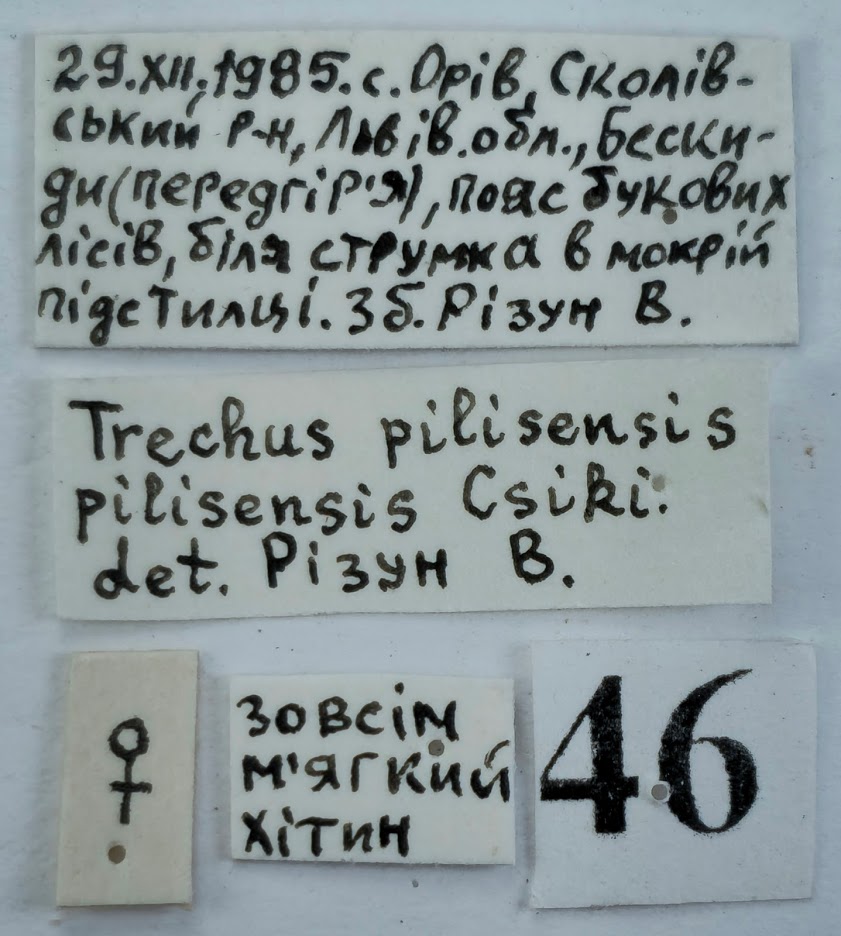 29.XII.1985.с.Орів, Сколів-
ський р-н, Львів.обл., Бески-
ди(передгір'я), пояс букових
лісів, біля струмка в мокрій
підстилці. Зб. Різун В.
Trechus pilisensis
pilisensis Csiki.
det. Різун В.
♀
зовсім
м'ягкий
хітин
46